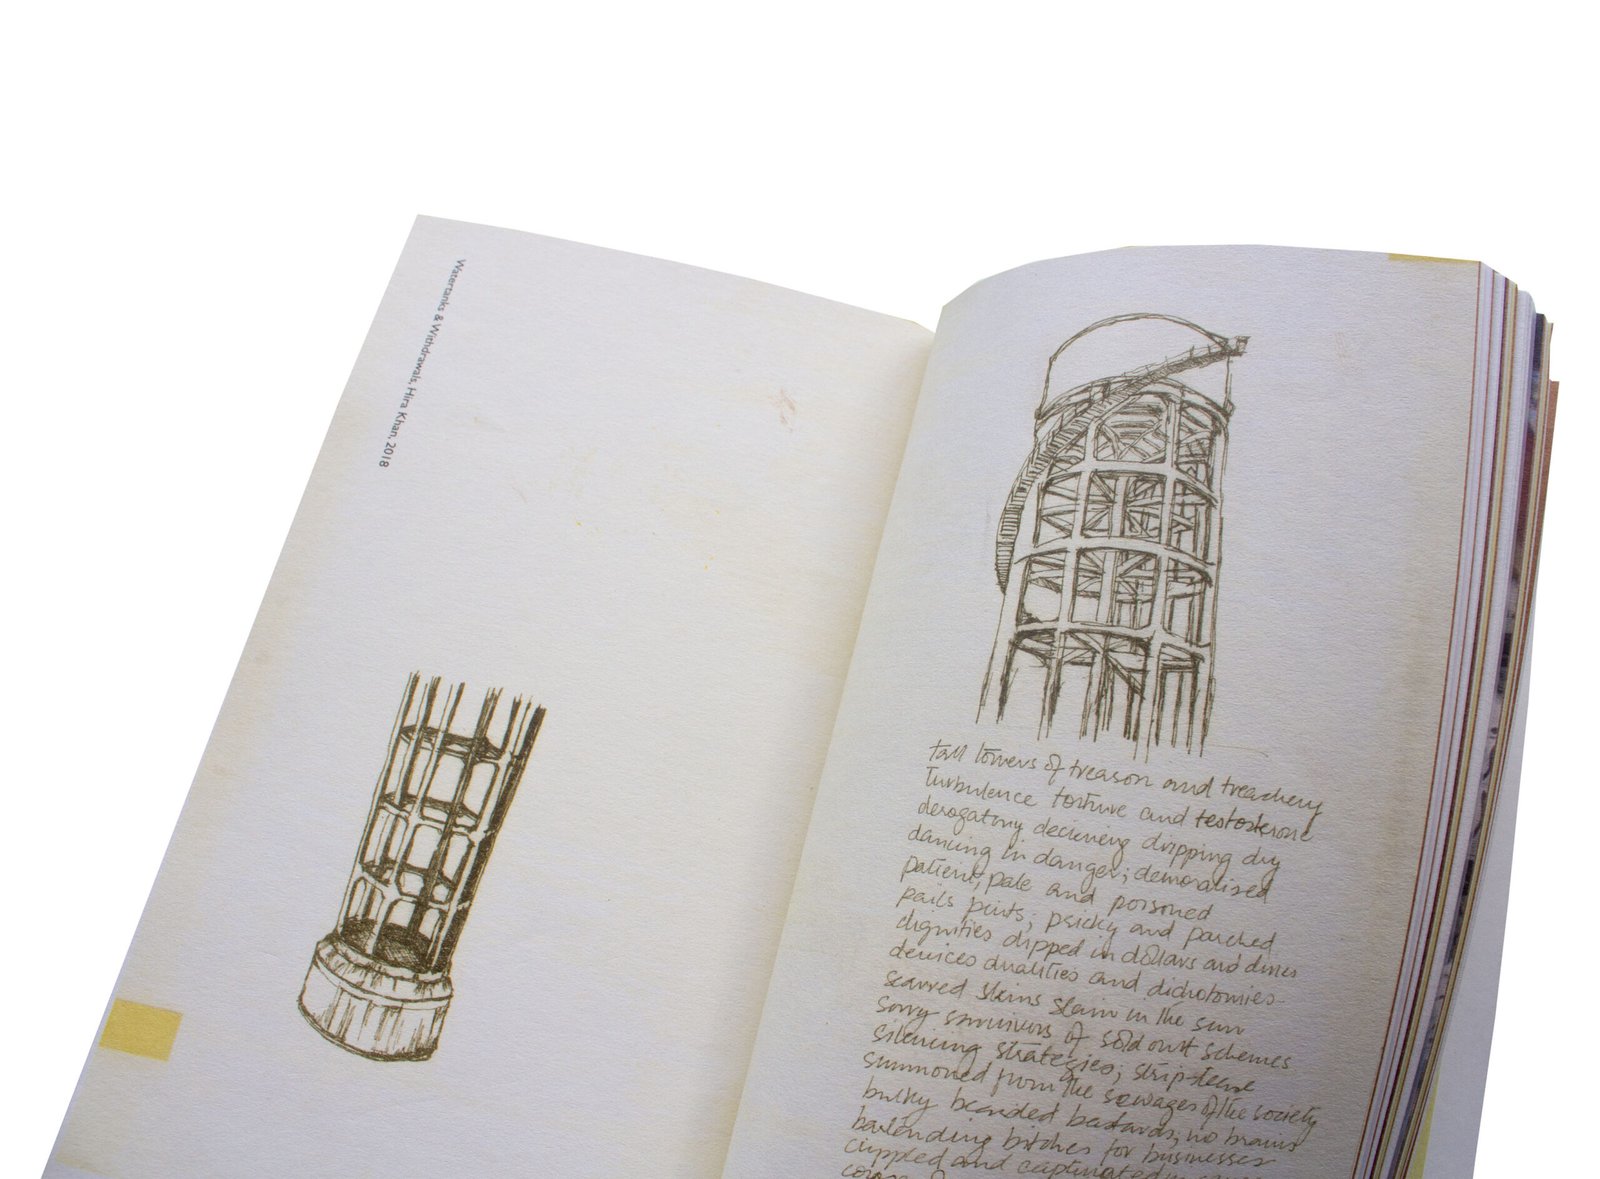 Watertanks & Withdrawals, Hira Khan, 2018
tall towers of treason and treachery
turbulence torture and testosterone
derogatory decieving dripping dry
dancing in danger; demoralised
patient, pale and poisoned
pails pints, prickly and parched
dignities dipped in dollars and dimes
devices dualities and dichotomies
scarred skins slain in the sun
sorry survivors of sold out schemes
silencing strategies; strip-tease
summoned from the sewages of the society
bulky bearded bastards, no brains
bartending bitches for businesses
crippled and captivated in